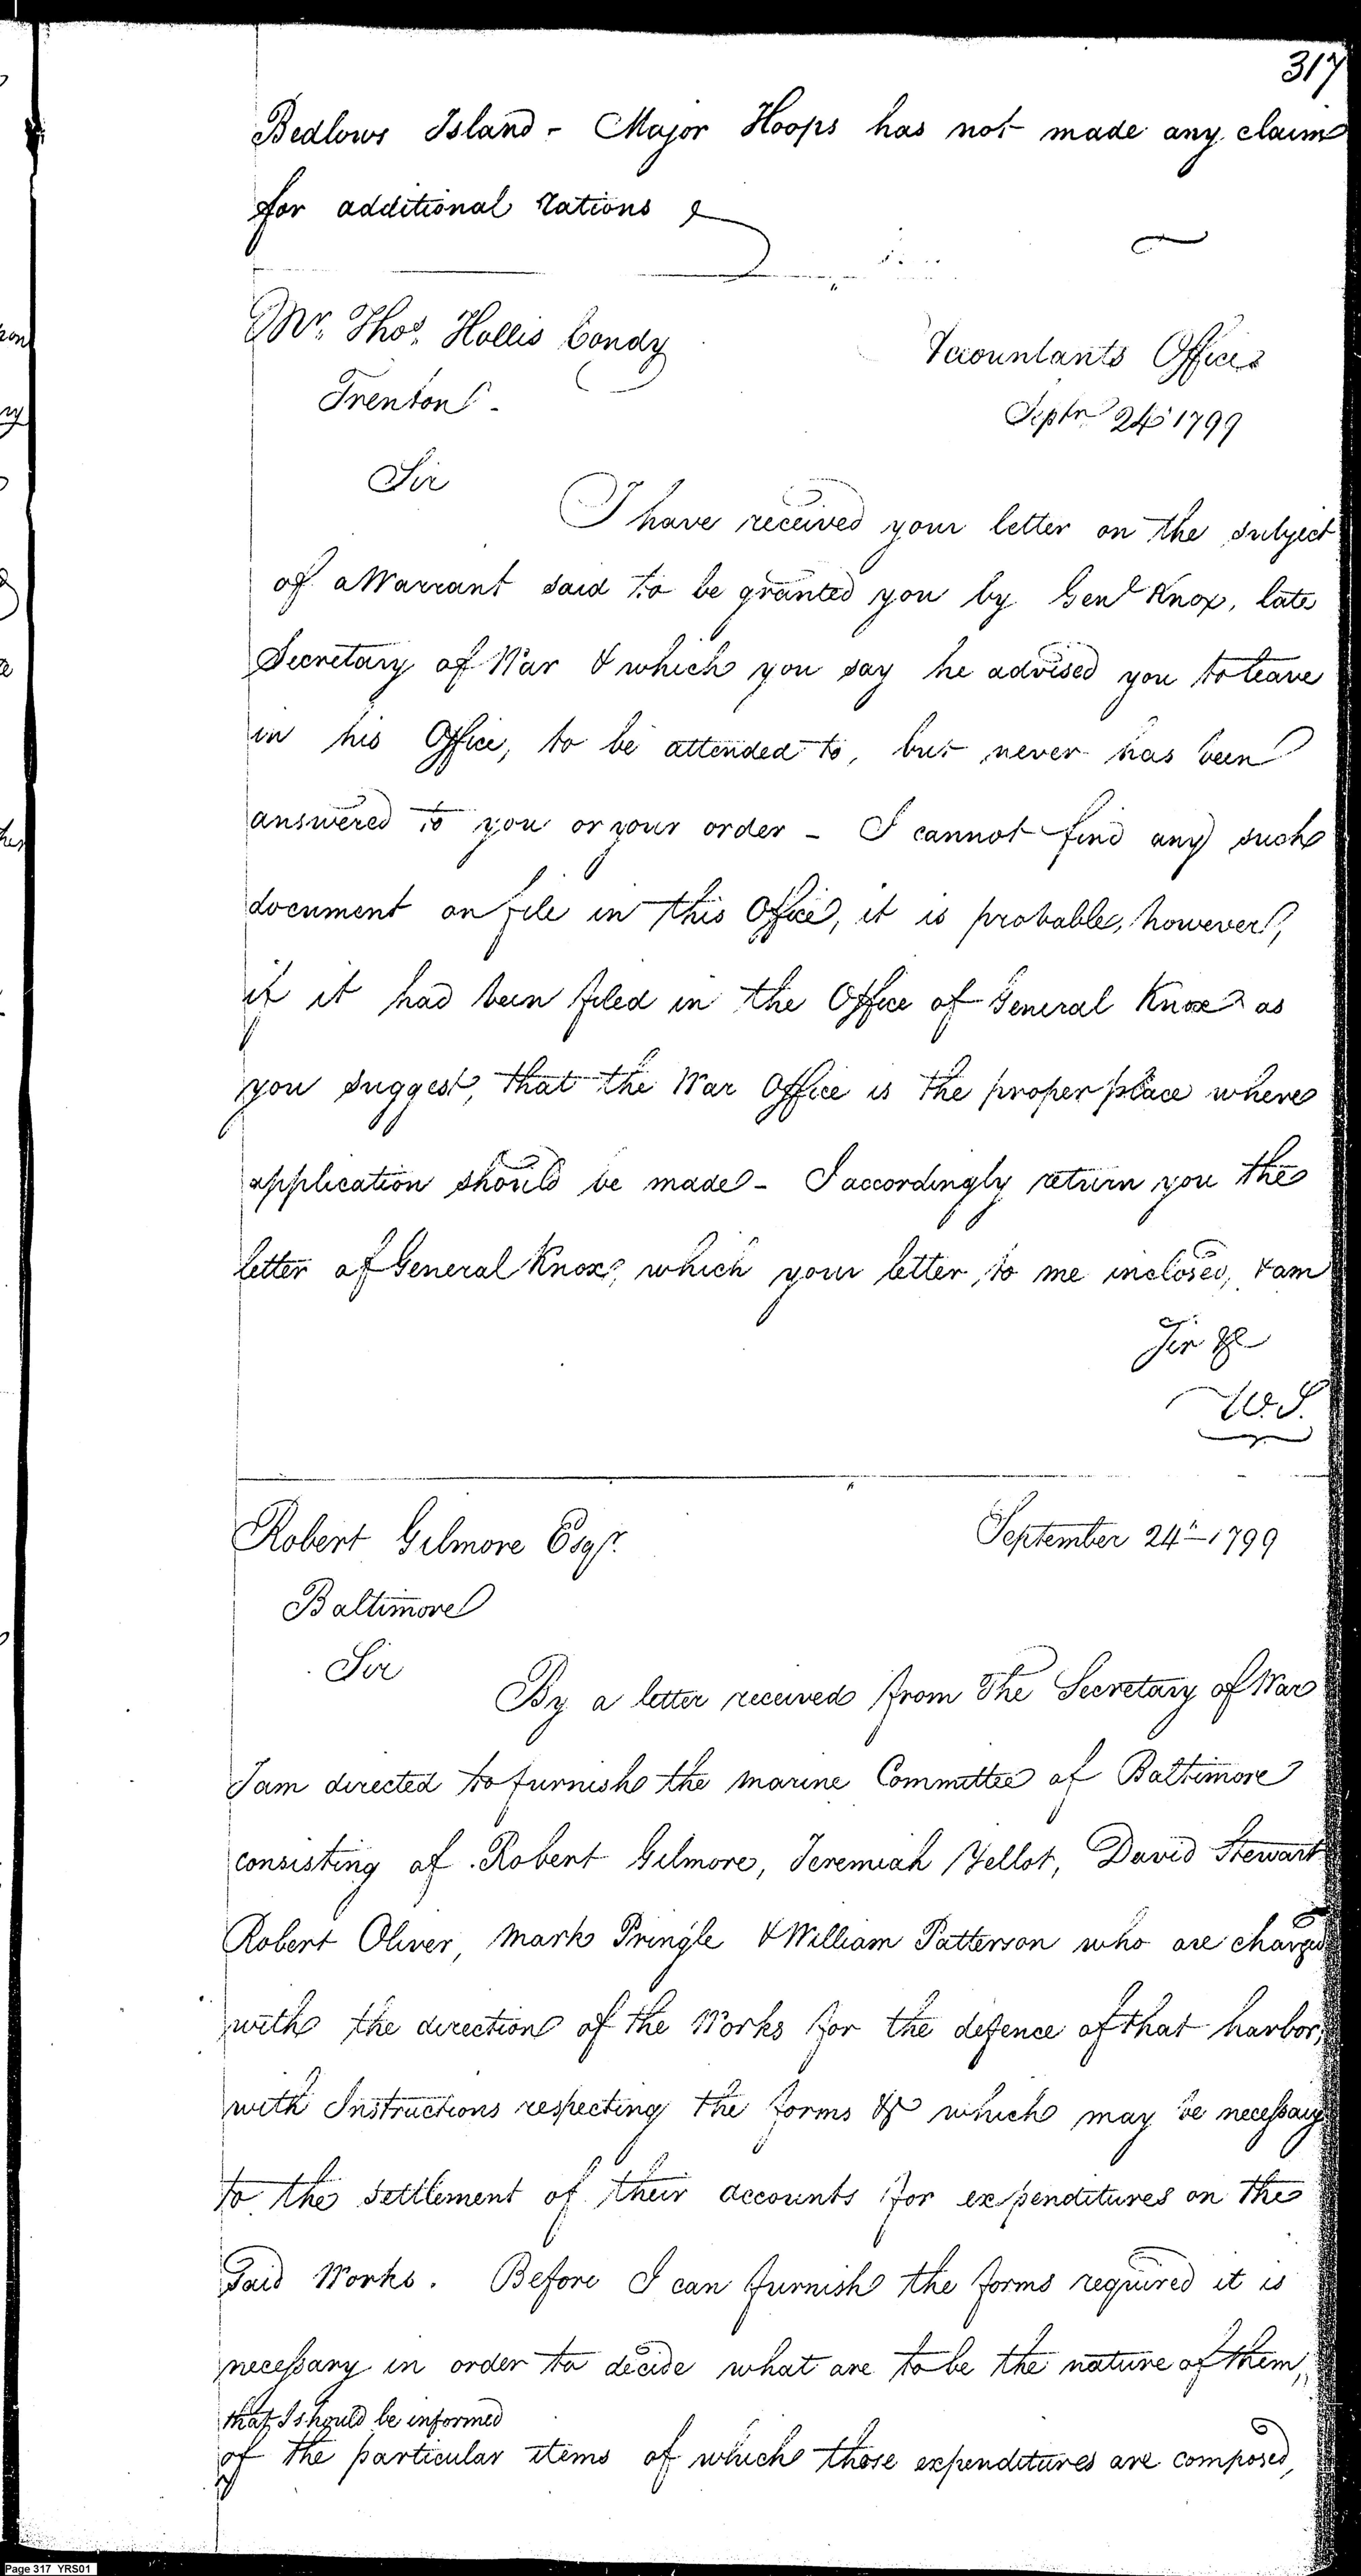 317
Bedlows Island - Major Hoops has not made any claim
for additional rations
Mr. Thos. Hollis Condy
Accountants Office
Trenton -
Septr 24 1799
Sir
I have received your letter on the subject
of a Warrant said to be granted you by Genl Knox, late
Secretary of War & which you say he advised you to leave
in his Office, to be attended to, but never has been
answered to you or your order - I cannot find any such
document on file in this Office, it is probable, however,
if it had been filed in the Office of General Knox as
you suggest, that the War Office is the proper place where
application should be made - I accordingly return you the
letter of General Knox, which your letter, to me inclosed, & am
Sir &c
W.S.
Robert Gilmore Esqr.
September 24th 1799
Baltimore
Sir
By a letter received from the Secretary of War
I am directed to furnish the marine Committee of Baltimore
consisting of Robert Gilmore, Jeremiah Yellot, David Stewart
Robert Oliver, Mark Pringle & William Patterson who are charged
with the direction of the Works for the defence of that harbor,
with Instructions respecting the forms &c which may be necessary
to the settlement of their accounts for expenditures on the
Said Works. Before I can furnish the forms required it is
necessary in order to decide what are to be the nature of them,
that I should be informed
of the particular items of which those expenditures are composed,
Page 317 YRS01